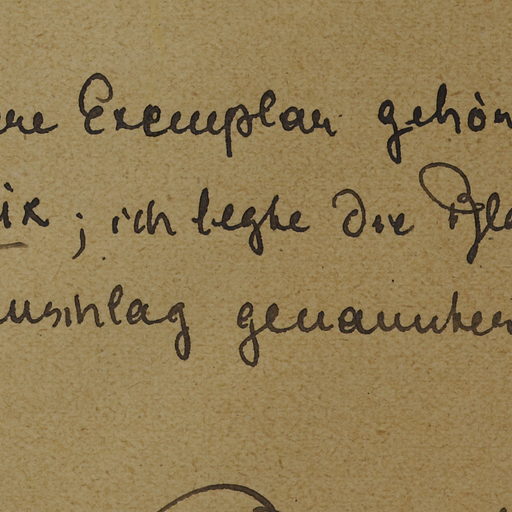 Exemplar gehör
ix; ich legte die Bla
nschlag genannten